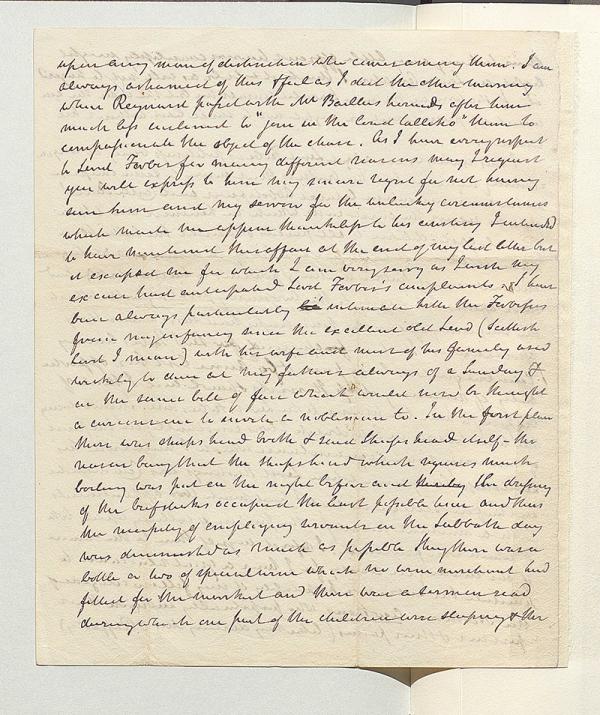 upon any man of distinction who comes among them. I am
always ashamed of this & feel as I did the other morning
when Reynard passed with Mr Baillies hounds after him
much less inclined to "join in the loud talliho" than to
compassionate the object of the chase. As I have every respect
to Lord Forbes for many different reasons may I request
you will express to him my sincere regret for not having
seen him and my sorrow for the unlucky circumstances
which made me appear thankless to his civility I intended
to have mentioned this affair at the end of my last letter but
it escaped me for which I am very sorry as I wish my
excuse had anticipated Lord Forbes's compliments. I have
been always particularly intimate with the Forbeses
from my infancy since the excellent old Lord (Scottish
Lord I mean) with his wife and most of his family used
weekly to dine at my fathers always of a Sunday &
on the same bill of fare which would now be thought
a curious one to invite a nobleman to. In the first place
there was sheepshead broth & then Sheeps head itself the
reason being that the sheepshead which requires much
boiling was put on the night before and the dressing
of the beefsteaks occupied the least possible time and thus
the necessity of employing servants on the Sabbath day
was diminished as much as possible Then there was a
bottle or two of excellent wine which no wine merchant had
fitted for the market and there was a sermon read
during which one part of the children were sleeping & the